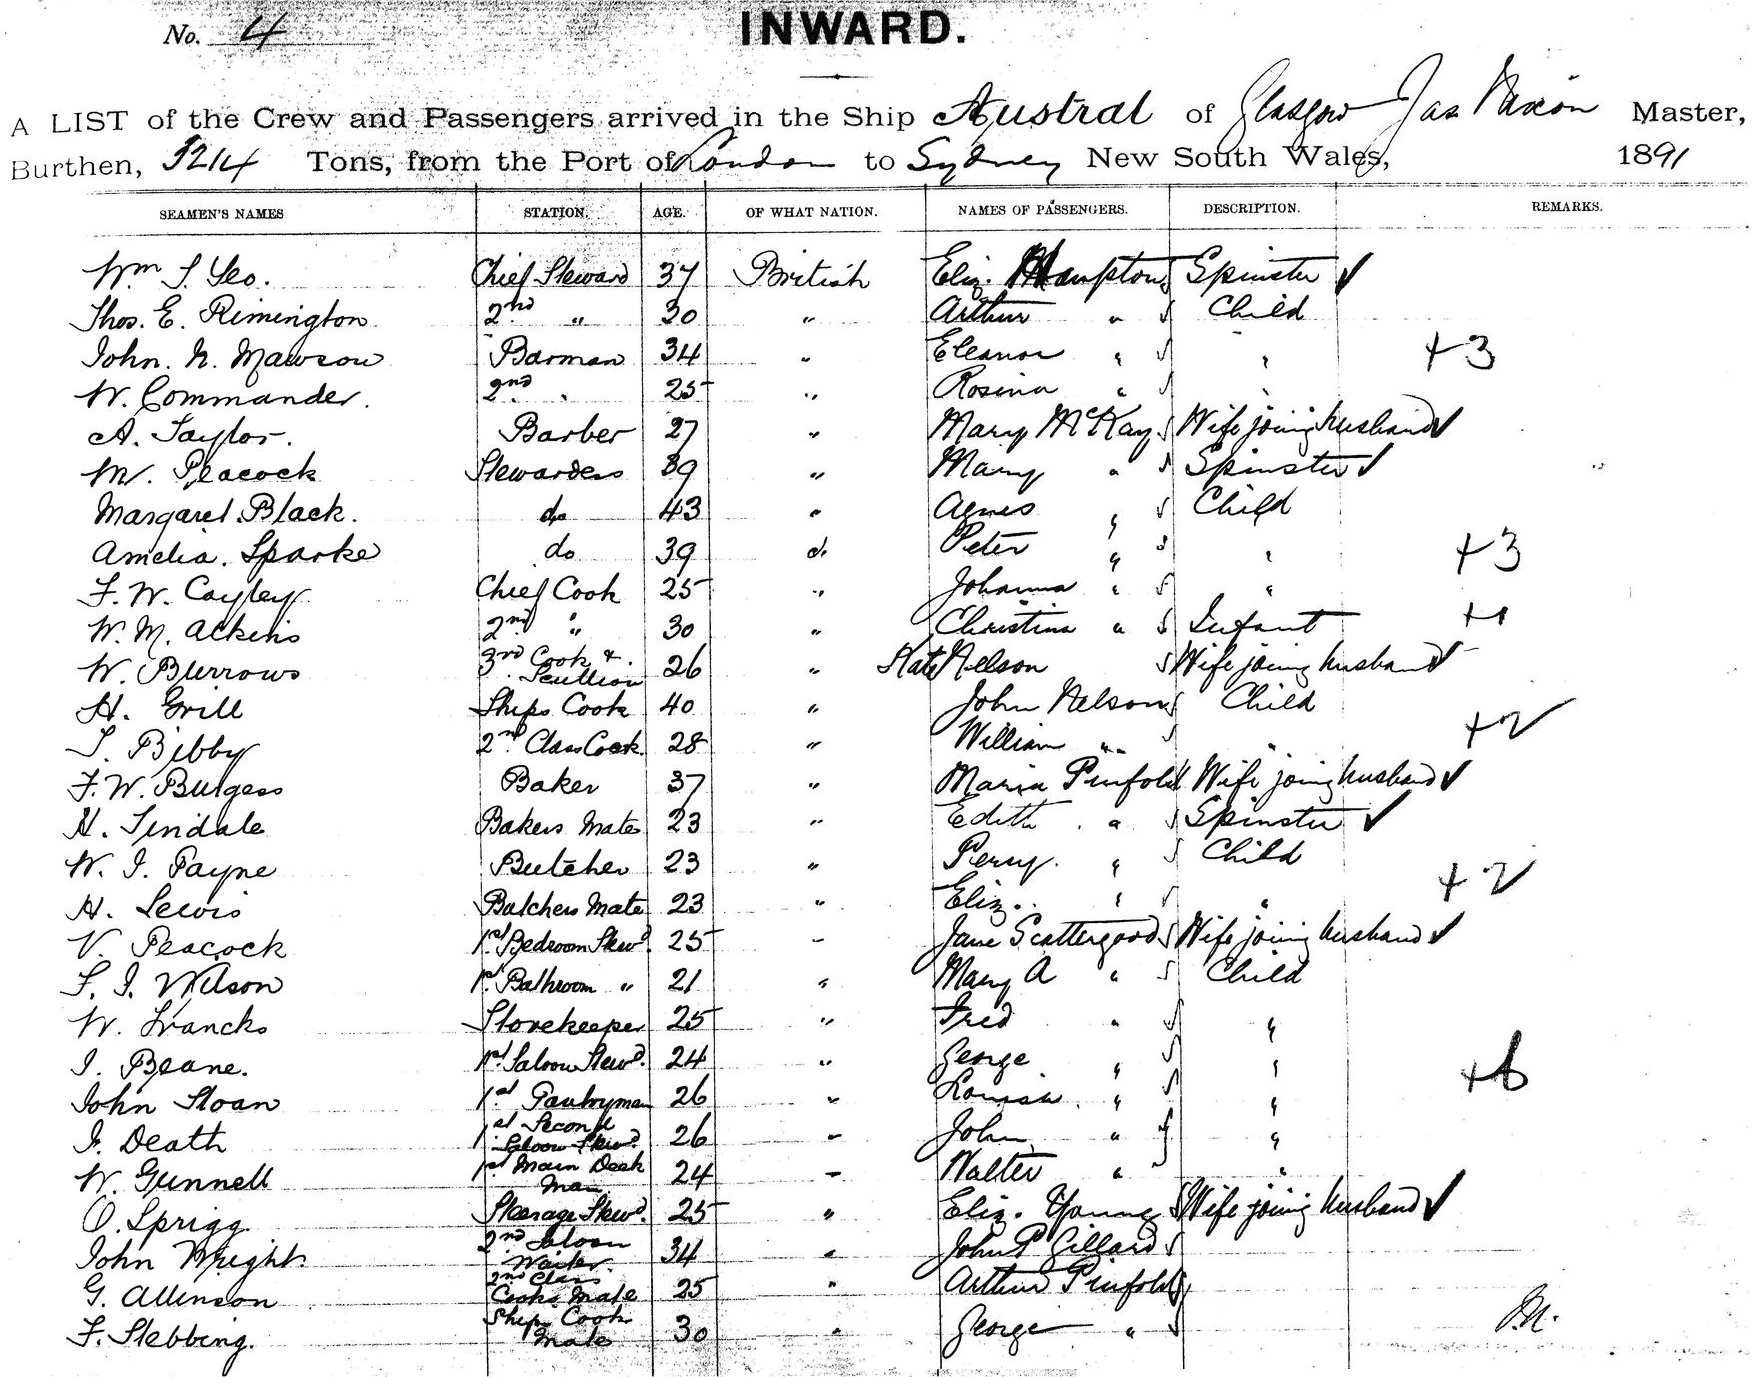 No. 4
INWARD.
A LIST of the Crew and Passengers arrived in the Ship Austral of Glasgow Jas Nixon Master,
Burthen, 3214 Tons, from the Port of London to Sydney New South Wales, 1891
SEAMEN'S NAMES STATION. AGE. OF WHAT NATION. NAMES OF PASSENGERS. DESCRIPTION. REMARKS.
Wm S. Yeo. Chief Steward 37 British Eliz. Hampton Spinster ✓
Thos. E. Rimington 2nd " 30 " Arthur " Child
John. N. Mawson Barman 34 " Eleanor " " +3
W. Commander. 2nd " 25 " Rosina " "
A. Taylor. Barber 27 " Mary McKay Wife joing husband ✓
M. Peacock Stewardess 39 " Mary " Spinster ✓
Margaret Black. do 43 " Agnes " Child
Amelia. Sparke do 39 do Peter " " +3
F. W. Cayley Chief Cook 25 " Johanna " "
W. M. Atkins 2nd " 30 " Christina " Infant +1
W. Burrows 3rd Cook & Scullion 26 " Kate Nelson Wife joing husband ✓
H. Grill Ships Cook 40 " John Nelson Child
T. Bibby 2nd Class Cook 28 " William " " +2
F. W. Burgess Baker 37 " Maria Pinfold Wife joing husband ✓
H. Tindale Bakers Mate 23 " Edith " Spinster ✓
W. J. Payne Butcher 23 " Percy. " Child
H. Lewis Butchers Mate 23 " Eliz. " " +2
V. Peacock 1st Bedroom Stewd. 25 " Jane Scattergood Wife joing husband ✓
F. J. Wilson 1st Bathroom " 21 " Mary A " Child
W. Francks Storekeeper 25 " Fred " "
J. Beane. 1st Saloon Stewd. 24 " George " "
John Sloan 1st Pantryman 26 " Louisa. " " +6
J. Death 1st Second Saloon Stewd. 26 " John " "
W. Gunnell 1st Main Deck Man 24 " Walter " "
O. Sprigg Steerage Stewd. 25 " Eliz. Young Wife joing husband ✓
John Wright 2nd Saloon Waiter. 34 " John P Gillard
G. Allinson 2nd Class Cooks Mate 25 " Arthur Pinfold
F. Stebbing. Ships Cook Mate 30 " George " M.